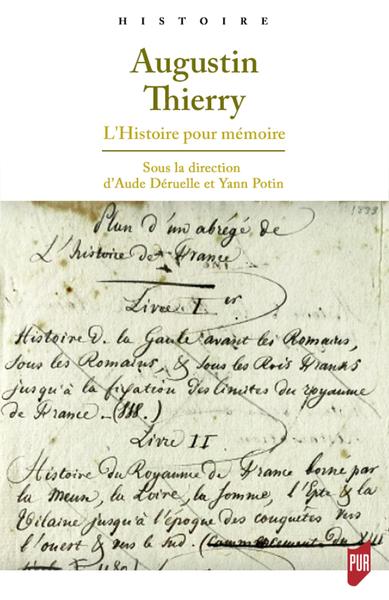 HISTOIRE
Augustin
Thierry
L'Histoire pour mémoire
Sous la direction
d'Aude Déruelle et Yann Potin
1838
Plan d'un abrégé de
L'histoire de France
Livre Ier
Histoire d. la Gaule avant les Romains,
sous les Romains, & sous les Rois Franks
jusqu'à la fixation des limites du royaume
de France. (888.)
Livre II
Histoire du Royaume de France borné par
la Meuse, la Loire, la Somme, l'Epte & la
Vilaine jusqu'à l'époque des conquêtes vers
l'ouest & vers le sud. (Commencement du XIII
PUR